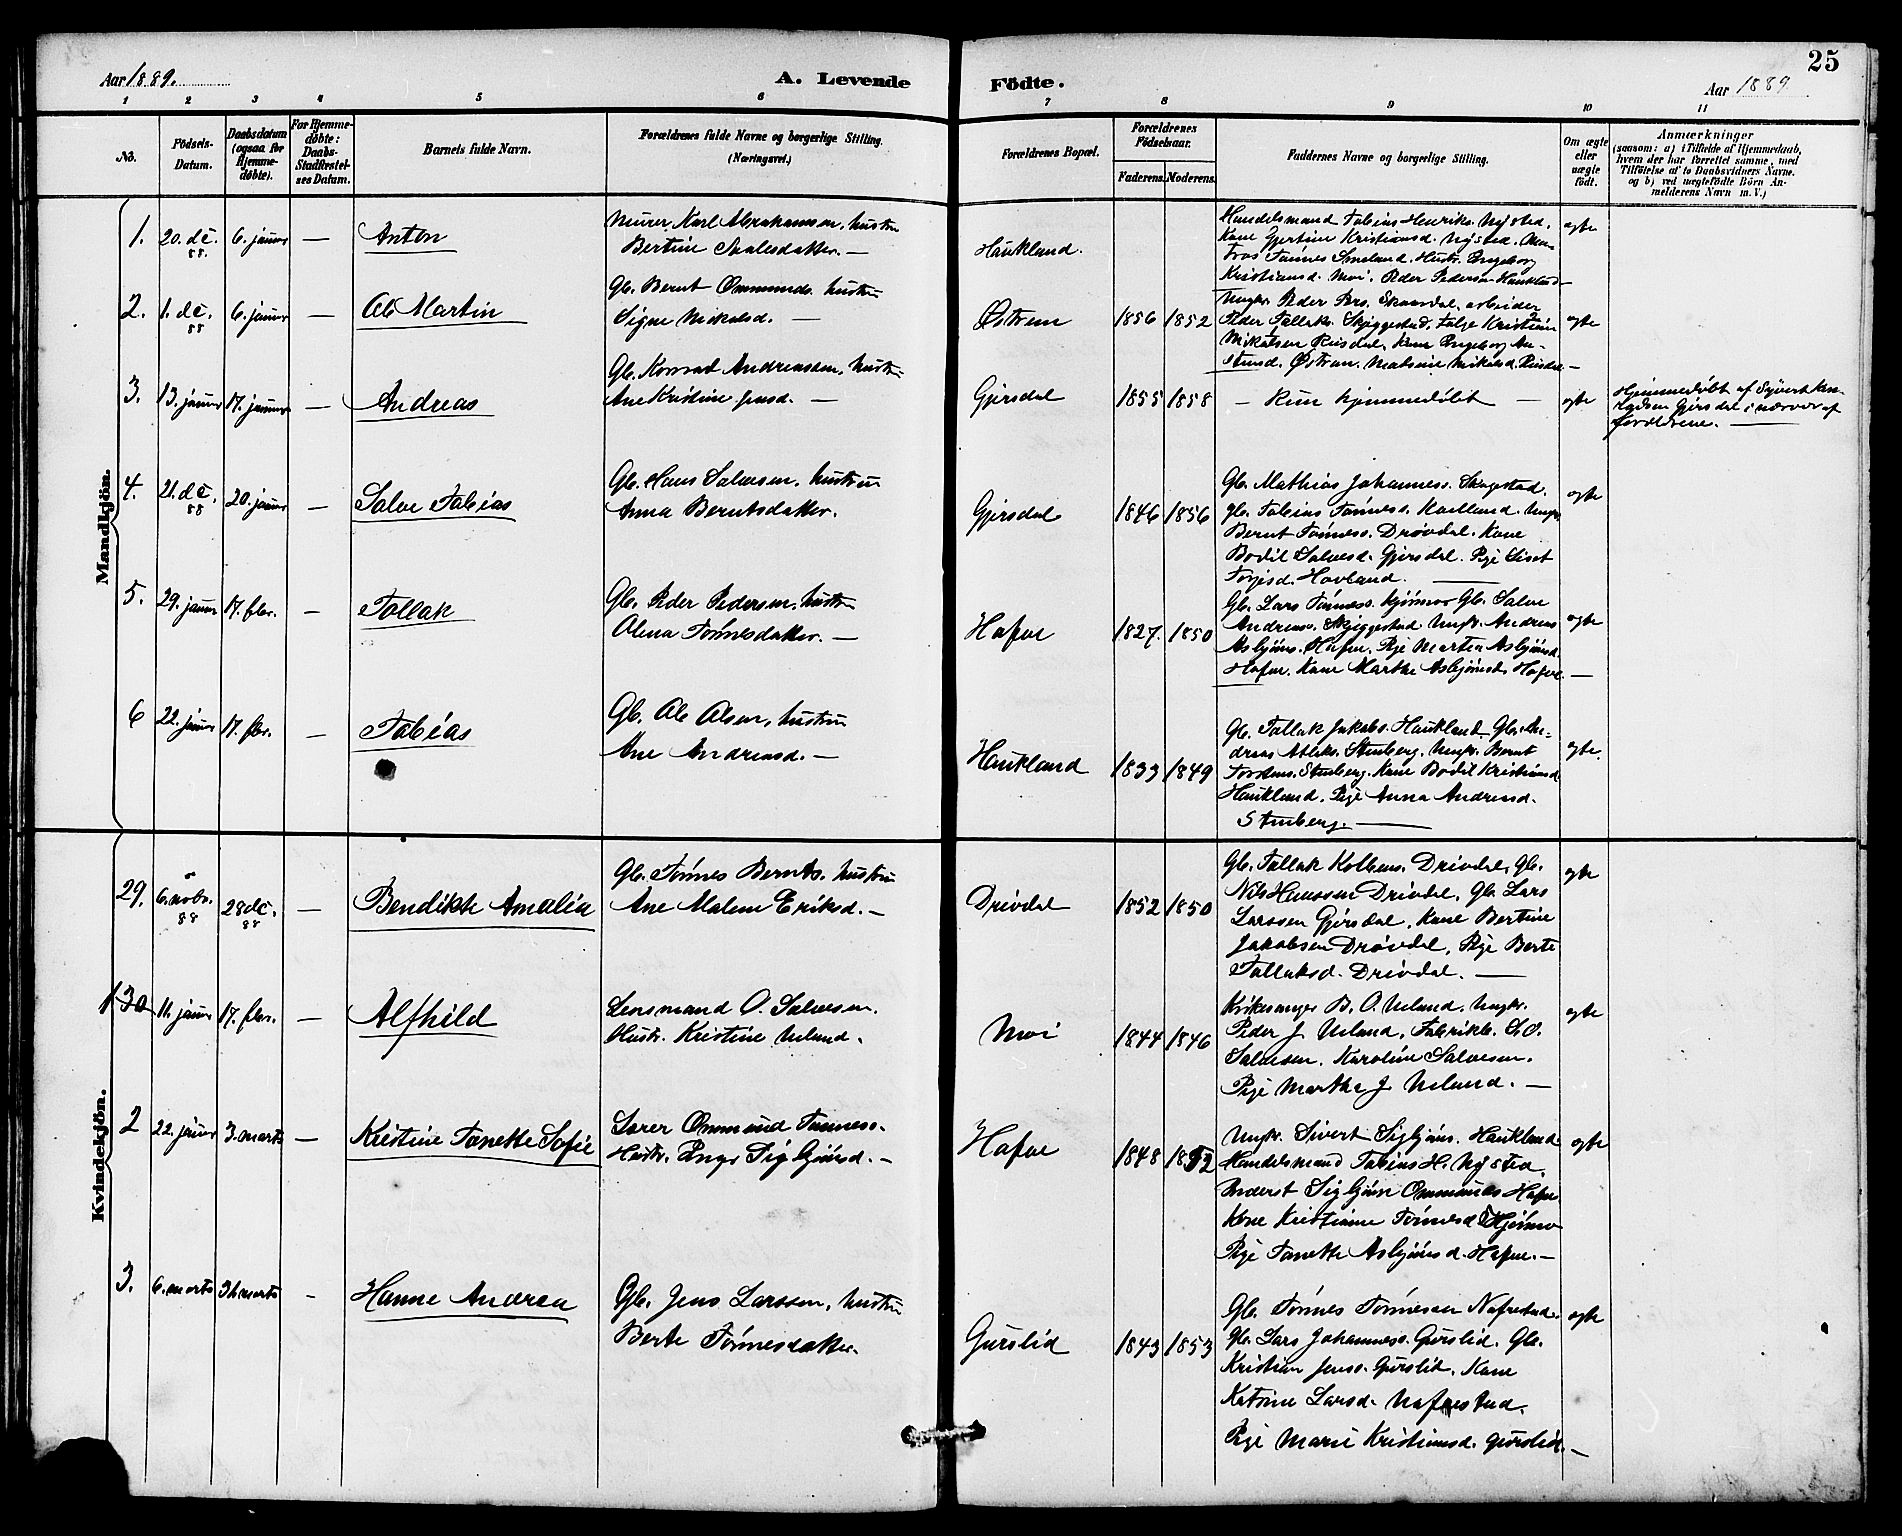 Aar 1889.
A. Levende
Födte.
Aar 1889.
25
1 2 3 4 5 6 7 8 9 10 11
No.
Födsels-
Datum.
Daabsdatum
(ogsaa for
Hjemme-
døbte).
For Hjemme-
døbte:
Daabs-
Stadfæstel-
ses Datum.
Barnets fulde Navn.
Forældrenes fulde Navne og borgerlige Stilling.
(Næringsvei.)
Forældrenes Bopæl.
Forældrenes
Födselsaar.
Faderens. Moderens.
Faddernes Navne og borgerlige Stilling.
Om ægte
eller
uægte
født.
Anmærkninger
(saasom: a) i Tilfælde af Hjemmedaab,
hvem der har forrettet samme, med
Tilföielse af to Daabsvidners Navne.
og b) ved uægtefödte Börn An-
melderens Navn m. V.)
Mandkjön.
1. 20. dc. 88. 6. januar — Anton
Murer Karl Abrahamsen, hustru
Bertine Paalesdatter. —
Haukland.
Handelsmand Tobias Henriks. Nysted.
Kone Gjertine Kristiansd. Nysted.
Tønnes Smeland. Hustr. Ingeborg
Kristiansd. Moi. Peder Pedersen Haukland —
ægte
2. 1. dc. 88 6. januar — Ole Martin
Gb. Bernt Ommunds. hustru
Signe Mikalsd. —
Østrem 1856 1852
Ungkr. Peder Pers. Skaardal, arbeider
Peder Tallaks. Skjeggestad, Kristian
Mikalsen Reisdal, Kone Ingeborg
Østrem. Mikalsd. —
ægte
3. 13. januar 17. januar — Andreas
Gb. Konrad Andreassen, hustru
Ane Kristine Jensd. —
Gjersdal 1855 1858
— Kun hjemmedøbt —
ægte
Hjemmedøbt af Syvert
Gjersdal i nærvær af
forældrene. —
4. 21. dc. 88 20. januar — Salve Tobias
Gb. Hans Salvesen, hustru
Anna Berntsdatter.
Gjersdal 1846 1856
Gb. Mathias Johanness. Skagestad.
Gb. Tobias Tønness. Haukland. Ungkr.
Bernt Tønness. Drøvdal. Kone
Bodil Salvesd. Gjersdal. Pige Siset
Torjesd. Hovland. —
ægte
5. 29. januar 17. febr. — Tollak
Gb. Peder Pedersen, hustru
Olena Tønnesdatter. —
Hafsøe 1827. 1850
Gb. Lars Tønness. Kjörmo Gb. Salve
Andreass. Skjeggestad Ungkr. Andreas
Asbjörns. Pige Martea Asbjörnsd.
Kone Marthe Asbjörnsd. —
ægte
6 22. januar 17. febr. — Tobias
Gb. Ole Olsen, hustru
Ane Andreasd. —
Haukland 1833 1849
Gb. Tallak Jakobs. Haukland Gb. An-
dreas Atlaks. Stenberg. Ungkr. Bernt
Torstens. Stenberg. Kone Bodil Kristiansd
Haukland. Pige Anna Andreasd.
Stenberg. —
ægte.
Kvindekjön.
29. 6. novbr. 88 28 dc. 88 — Bendikte Amalia
Gb. Tönnes Bernts. hustru
Ane Malene Eriksd. —
Drivdal 1852 1850
Gb. Tallak Kolbens. Drivdal, Gb.
Nils Hanssen Drivdal, Gb. Lars
Larssen Gjersdal, Kone Bertine
Jakobsen Drövdal, Pige Berte
Tallaksd. Drivdal. —
ægte
1 30 11. januar 17. febr. — Alfhild
Lensmand O. Salvesen.
Hustr. Kristine Ueland.
Moi 1844 1846
Kirkesanger B. O. Ueland. Ungkr.
Peder J. Ueland, Fabrikb. L. O.
Salvesen, Karoline Salvesen.
Pige Martha J. Ueland. —
ægte
2 22. januar 3. marts — Kristine Tonette Sofie
Lærer Ommund Tønness.
Hustr. Inger Sigbjörnsd. —
Hafsøe 1848 1852
Ungkr. Sivert Sigbjörns. Haukland
Handelsmand Tobias H. Nysted.
Sigbjörn Ommunds
Kone Kristianne Tönnesd Kjörmo
Pige Tonette Asbjörnsd. —
ægte
3. 6. marts 31 marts — Hanne Andrea
Gb. Jens Larssen, hustru
Berte Tönnesdatter.
Gursled 1843 1853
Gb. Tönnes Tönnesen Nafrestad.
Gb. Lars Johanness. Gursled. Gb.
Kristian Jenss. Gursled. Kone
Katrine Larsd. Nafrestad.
Pige Marie Kristiansd. Gursled. —
ægte